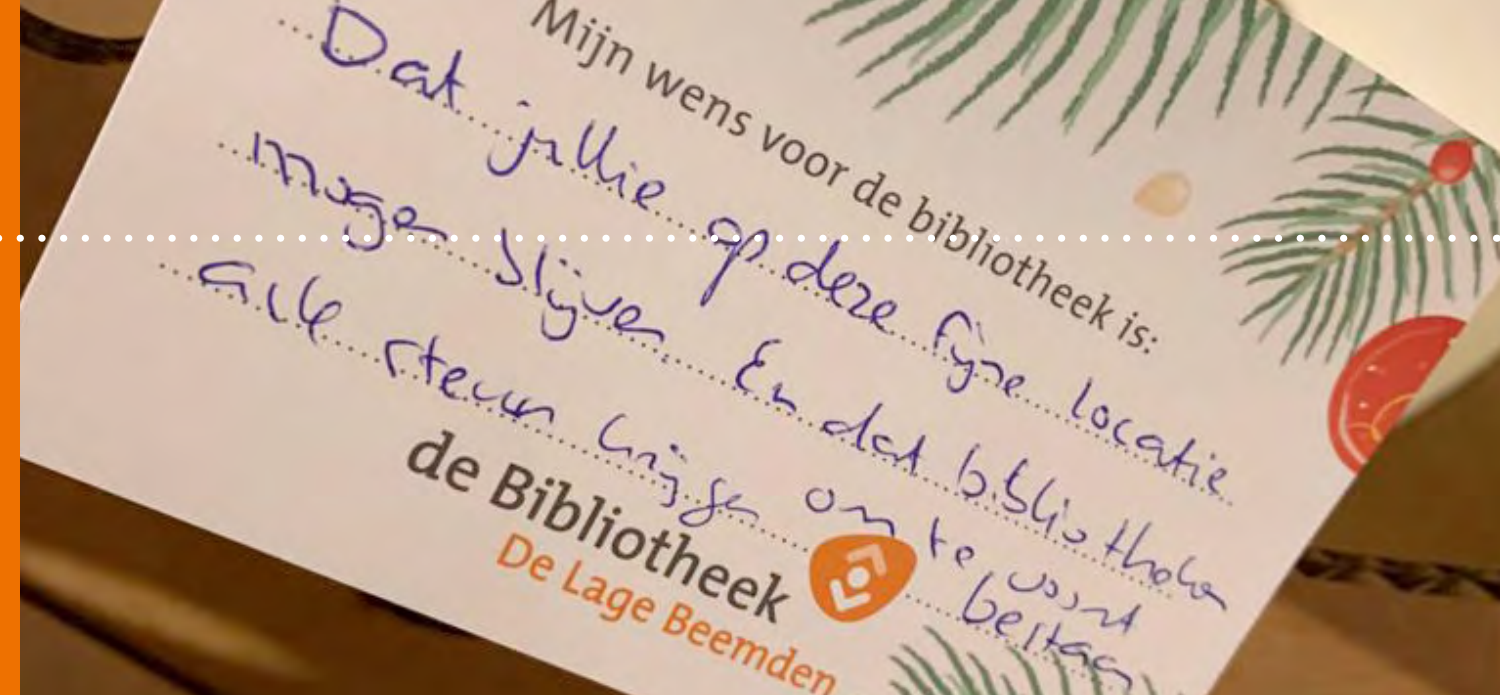 Mijn wens voor de bibliotheek is:
Dat jullie op deze fijne locatie
mogen blijven. En dat bibliotheken
alle steun krijgen om te voort
bestaan
de Bibliotheek
De Lage Beemden